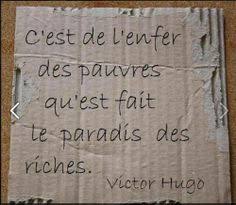 C'est de l'enfer
des pauvres
qu'est fait
le paradis des
riches.
Victor Hugo